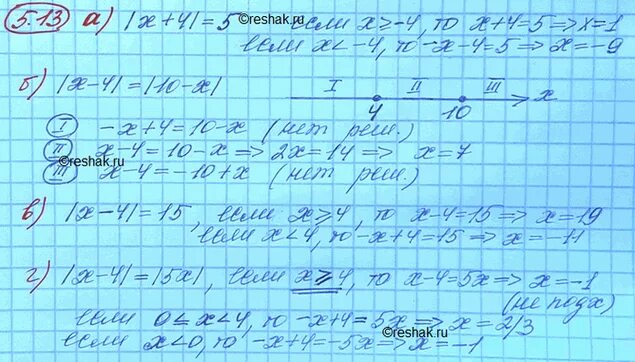 5.13 а) |x+4|=5 если x≥-4, то x+4=5 ⇒ x=1
©reshak.ru
если x<-4, то -x-4=5 ⇒ x=-9
б) |x-4|=|10-x|
I II III
4 10 x
I -x+4=10-x (нет реш.)
II x-4=10-x ⇒ 2x=14 ⇒ x=7
©reshak.ru
III x-4=-10+x (нет реш.)
в) |x-4|=15, если x≥4, то x-4=15 ⇒ x=19
если x<4, то -x+4=15 ⇒ x=-11
г) |x-4|=|5x|, если x≥4, то x-4=5x ⇒ x=-1
(не подх)
если 0≤x<4, то -x+4=5x ⇒ x=2/3
если x<0, то -x+4=-5x ⇒ x=-1
©reshak.ru